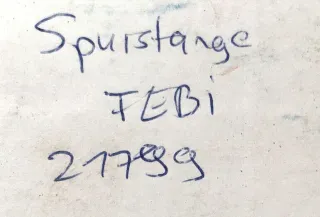 Spurstange
FEBi
21799